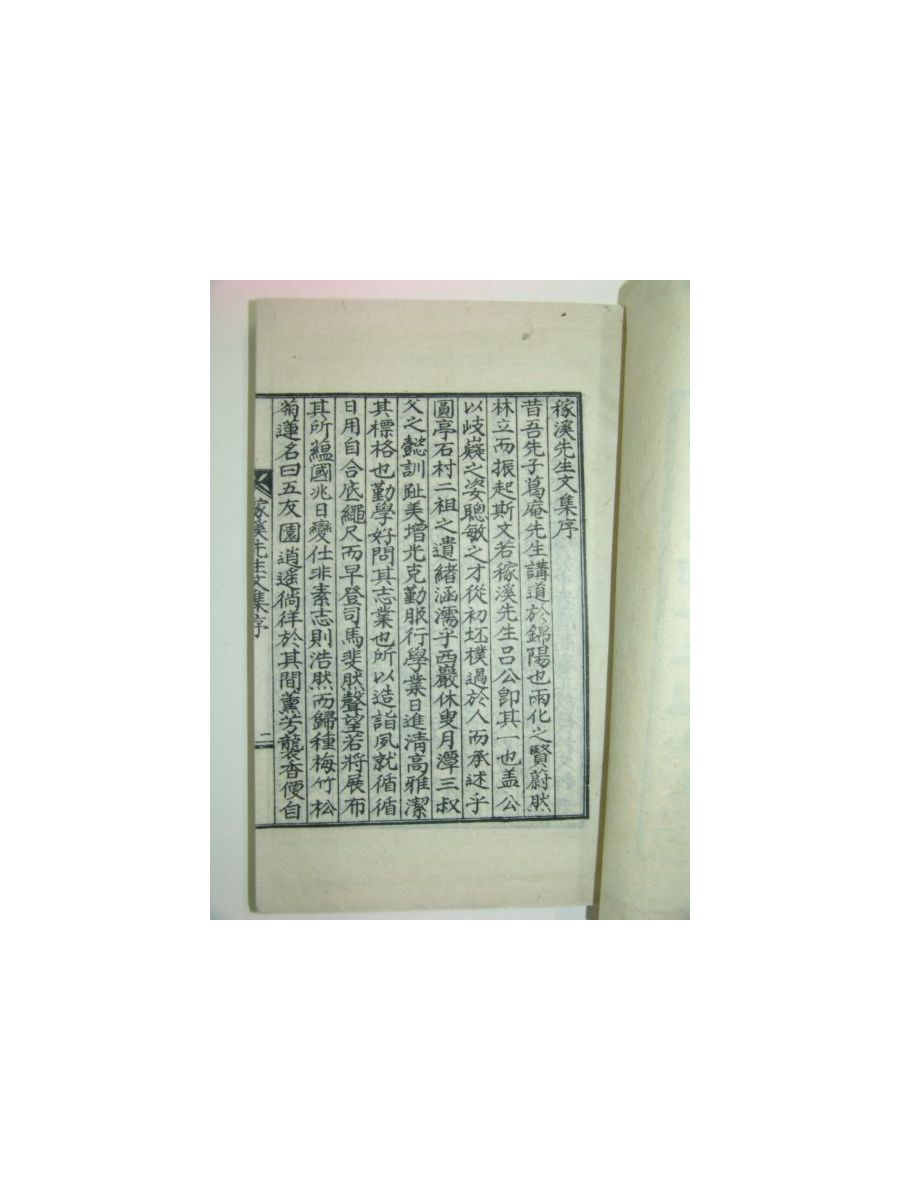 稼溪先生文集序
昔吾先子葛庵先生講道於錦陽也雨化之賢蔚然
林立而振起斯文若稼溪先生呂公卽其一也盖公
以歧嶷之姿聰敏之才從初坯樸過於人而承述乎
圓亭石村二祖之遺緖涵濡乎西巖休叟月潭三叔
父之懿訓趾美增光克勤服行學業日進淸高雅潔
其標格也勤學好問其志業也所以造詣夙就循循
日用自合底繩尺而早登司馬斐然聲望若將展布
其所蘊國兆日變仕非素志則浩然而歸種梅竹松
菊蓮名曰五友園逍遙徜徉於其間薰芳襲香便自
稼溪先生文集序
二